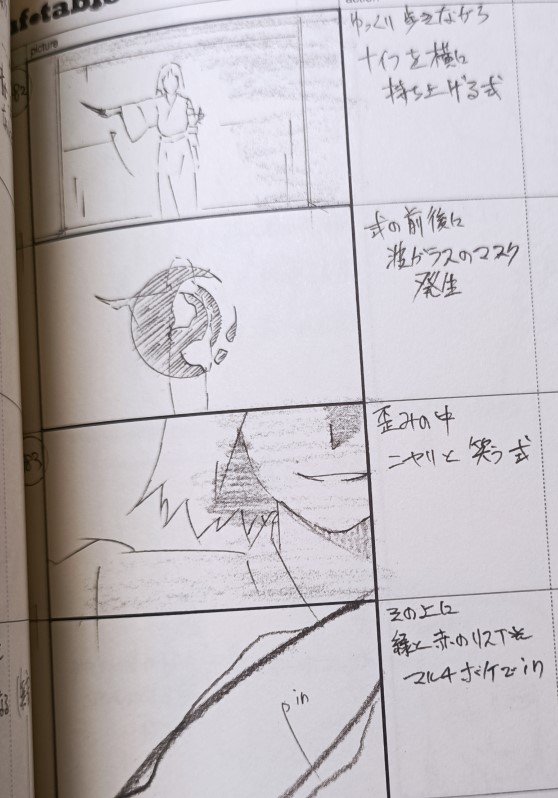 afetable
picture
ゆっくり歩きながら
ナイフを横に
持ち上げる式
式の前後に
波ガラスのマスク
発生
83
歪みの中
ニヤリと笑う式
その上に
緑と赤のリスト光
マルチボケでin
in